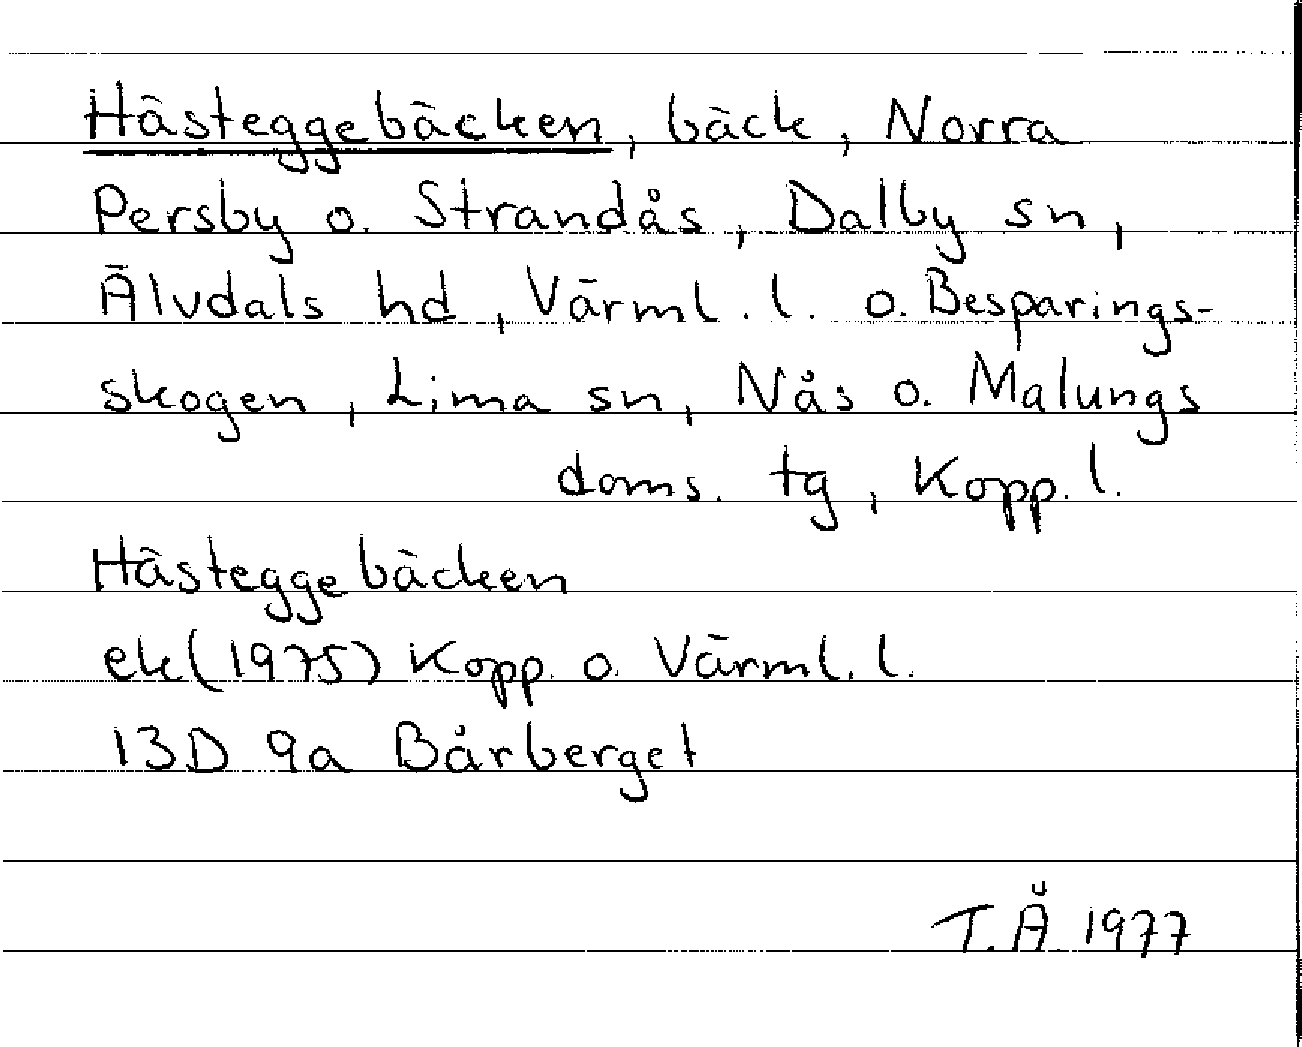 Hästeggebäcken, bäck, Norra
Persby o. Strandås, Dalby sn,
Älvdals hd, Värml. l. o. Besparings-
skogen, Lima sn, Nås o. Malungs
doms. tg, Kopp. l.
Hästeggebäcken
ek (1975) Kopp. o. Värml. l.
13D 9a Bårberget
T. Å. 1977